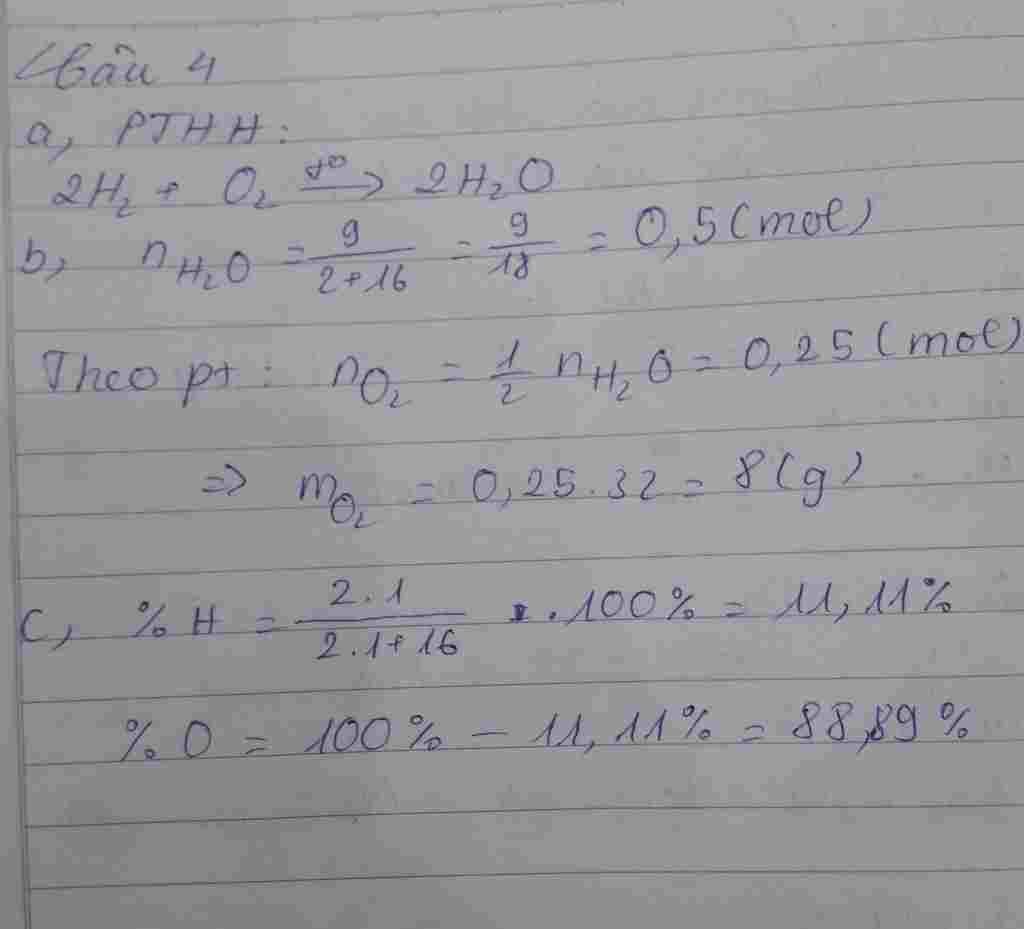 Câu 4
a, PTHH:
2H₂ + O₂ —t°→ 2H₂O
b, n_H₂O = 9/(2+16) = 9/18 = 0,5 (mol)
Theo pt: n_O₂ = 1/2 n_H₂O = 0,25 (mol)
=> m_O₂ = 0,25.32 = 8 (g)
c, % H = (2.1)/(2.1+16) . 100% = 11,11%
% O = 100% - 11,11% = 88,89 %